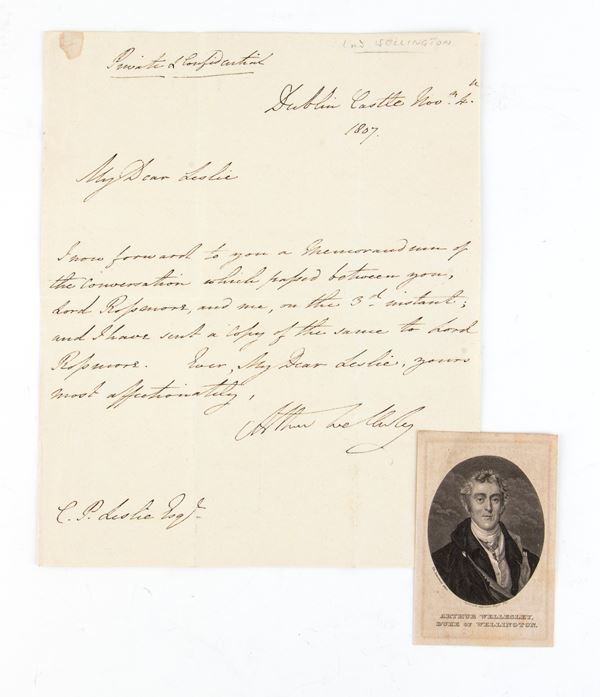 WELLINGTON
Private & Confidential
Dublin Castle Novr. 4th
1807.
My Dear Leslie
I now forward to you a Memorandum of
the Conversation which passed between you,
Lord Rossmore, and me, on the 3d. instant;
and I have sent a Copy of the same to Lord
Rossmore. Ever, My Dear Leslie, yours
most affectionately,
Arthur Wellesley
C. P. Leslie Esqr.
ARTHUR WELLESLEY,
DUKE OF WELLINGTON.